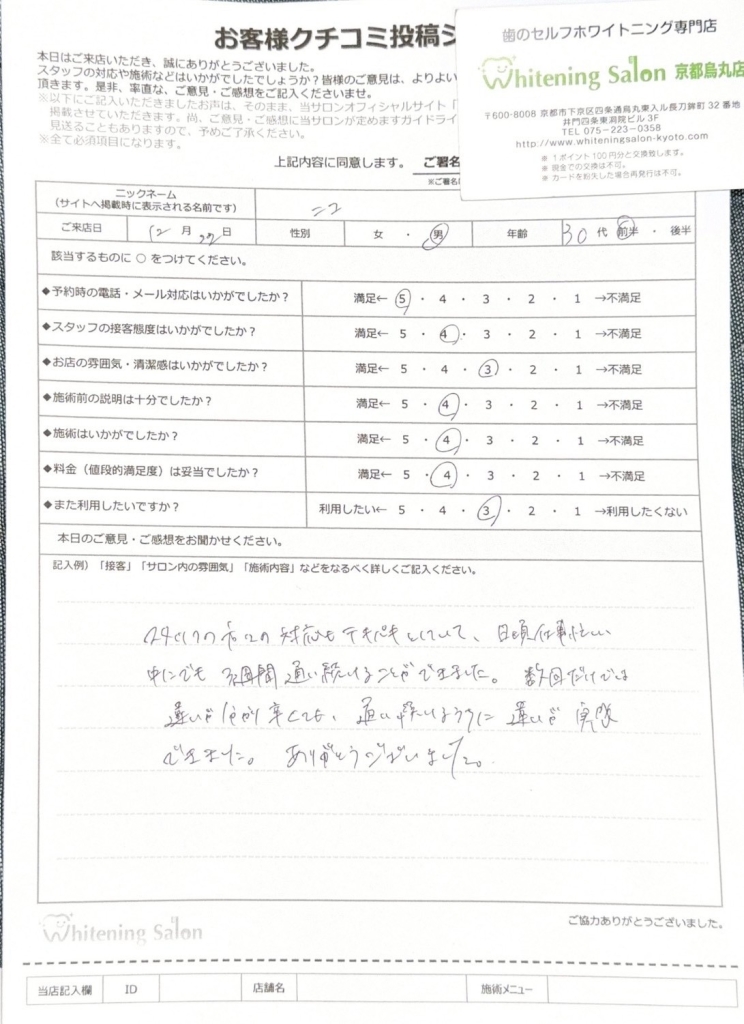 お客様クチコミ投稿シ
本日はご来店いただき、誠にありがとうございました。
スタッフの対応や施術などはいかがでしたでしょうか？皆様のご意見は、よりよい
頂きます。是非、率直な、ご意見・ご感想をご記入くださいませ。
※以下にご記入いただきましたお声は、そのまま、当サロンオフィシャルサイト「
掲載させていただきます。尚、ご意見・ご感想に当サロンが定めますガイドライ
見送ることもありますので、予めご了承ください。
※全て必須項目になります。
上記内容に同意します。 ご署名
※ご署名
歯のセルフホワイトニング専門店
Whitening Salon 京都烏丸店
〒600-8008 京都市下京区四条通烏丸東入ル長刀鉾町 32 番地
井門四条東洞院ビル 3F
TEL 075-223-0358
http://www.whiteningsalon-kyoto.com
※ 1ポイント100円分と交換致します。
※ 現金での交換は不可。
※ カードを紛失した場合再発行は不可。
ニックネーム
（サイトへ掲載時に表示される名前です） ニコ
ご来店日 12 月 22 日 性別 女 ・ 男 年齢 30 代 前半 ・ 後半
該当するものに ○ をつけてください。
◆予約時の電話・メール対応はいかがでしたか？ 満足← 5 ・ 4 ・ 3 ・ 2 ・ 1 →不満足
◆スタッフの接客態度はいかがでしたか？ 満足← 5 ・ 4 ・ 3 ・ 2 ・ 1 →不満足
◆お店の雰囲気・清潔感はいかがでしたか？ 満足← 5 ・ 4 ・ 3 ・ 2 ・ 1 →不満足
◆施術前の説明は十分でしたか？ 満足← 5 ・ 4 ・ 3 ・ 2 ・ 1 →不満足
◆施術はいかがでしたか？ 満足← 5 ・ 4 ・ 3 ・ 2 ・ 1 →不満足
◆料金（値段的満足度）は妥当でしたか？ 満足← 5 ・ 4 ・ 3 ・ 2 ・ 1 →不満足
◆また利用したいですか？ 利用したい← 5 ・ 4 ・ 3 ・ 2 ・ 1 →利用したくない
本日のご意見・ご感想をお聞かせください。
記入例）「接客」「サロン内の雰囲気」「施術内容」などをなるべく詳しくご記入ください。
スタッフの方々の対応もテキパキとしていて、日頃仕事忙しい
中にでも 3週間通い続けることができました。数回だけでは
違いが分かり辛くても、通い続けるうちに違いが実感
できました。ありがとうございました。
Whitening Salon
ご協力ありがとうございました。
当店記入欄 ID 店舗名 施術メニュー